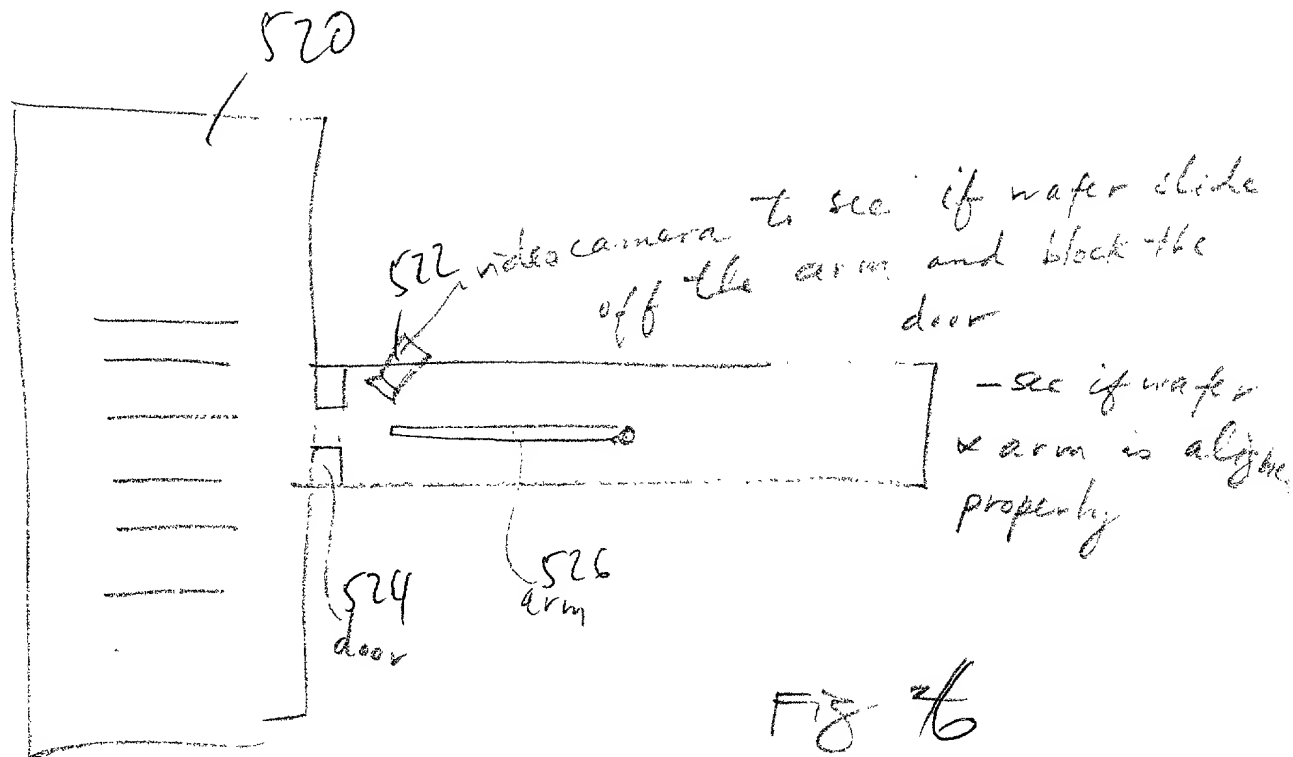 520
522 video camera to see if wafer slide
off the arm and block the
door
- see if wafer
& arm is aligned
properly
524
door
526
arm
Fig